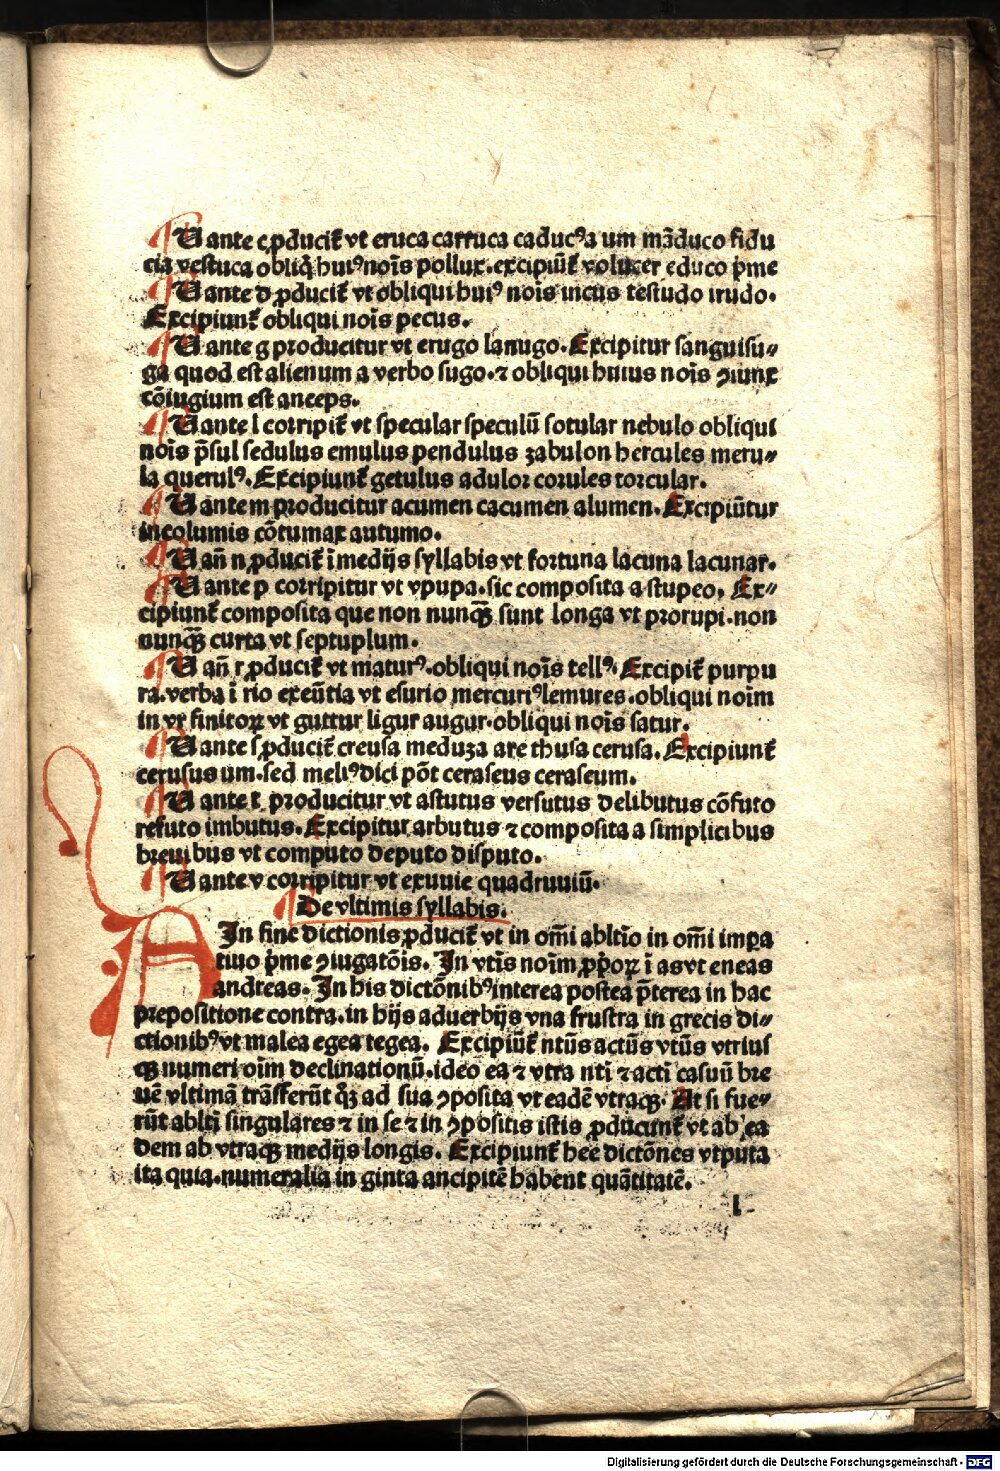 U ante c ꝓducit᷑ vt eruca carruca caducꝰa um mãduco fidu
cia vestuca obliq̃ huiꝰ nois̃ pollux. excipiũt᷑ volucer educo p̃me
U ante d ꝓducit᷑ vt obliqui huiꝰ nois̃ incus testudo irudo.
Excipiunt᷑ obliqui nois̃ pecus.
U ante g producitur vt erugo lanugo. Excipitur sanguisu⸗
ga quod est alienum a verbo sugo. ⁊ obliqui huius nois̃ ꝯiunx
cõiugium est anceps.
U ante l corripit᷑ vt specular speculũ sotular nebulo obliqui
nois̃ p̃sul sedulus emulus pendulus zabulon hercules meru⸗
la querulꝰ. Excipiunt᷑ getulus adulor corules torcular.
U ante m producitur acumen cacumen alumen. Excipiũtur
incolumis cõtumax autumo.
U añ n ꝓducit᷑ ĩ medijs syllabis vt fortuna lacuna lacunar.
U ante p corripitur vt vpupa. sic composita a stupeo. Ex⸗
cipiunt᷑ composita que non nunq̃ꝫ sunt longa vt prorupi. non
nunq̃ꝫ curta vt septuplum.
U añ r ꝓducit᷑ vt maturꝰ. obliqui nois̃ tellꝰ. Excipit᷑ purpu
ra. verba ĩ rio exeũtia vt esurio mercuriꝰ lemures. obliqui noim̃
in vr finitoꝝ vt guttur ligur augur. obliqui nois̃ satur.
U ante s ꝓducit᷑ creusa meduza are thusa cerusa. Excipiunt᷑
cerusus um. sed meliꝰ dici põt ceraseus ceraseum.
U ante t producitur vt astutus versutus delibutus cõfuto
refuto imbutus. Excipitur arbutus ⁊ composita a simplicibus
breuibus vt computo deputo disputo.
U ante v corripitur vt exuuie quadruuiũ.
De vltimis syllabis.
A In fine dictionis ꝓducit᷑ vt in om̃i ablt̃io in om̃i imꝑa
tiuo p̃me ꝯiugatõis. In vt̃is noim̃ ꝓp̃oꝝ ĩ as vt eneas
andreas. In his dictõnibꝰ interea postea p̃terea in hac
prepositione contra. in hijs aduerbijs vna frustra in grecis di⸗
ctionibꝰ vt malea egea tegea. Excipiũt᷑ nt̃us act̃us vt̃us vtrius
qꝫ numeri oim̃ declinationũ. ideo ea ⁊ vtra nt̃i ⁊ act̃i casuũ bre
uẽ vltimã trãsferũt q̃ꝫ ad sua ꝯposita vt eadẽ vtraqꝫ. At si fue⸗
rũt ablt̃i singulares ⁊ in se ⁊ in ꝯpositis istis ꝓducunt᷑ vt ab ea
dem ab vtraqꝫ medijs longis. Excipiunt᷑ hee dictõnes vt puta
ita quia. numeralia in ginta ancipitẽ habent quãtitatẽ.
Digitalisierung gefördert durch die Deutsche Forschungsgemeinschaft - DFG